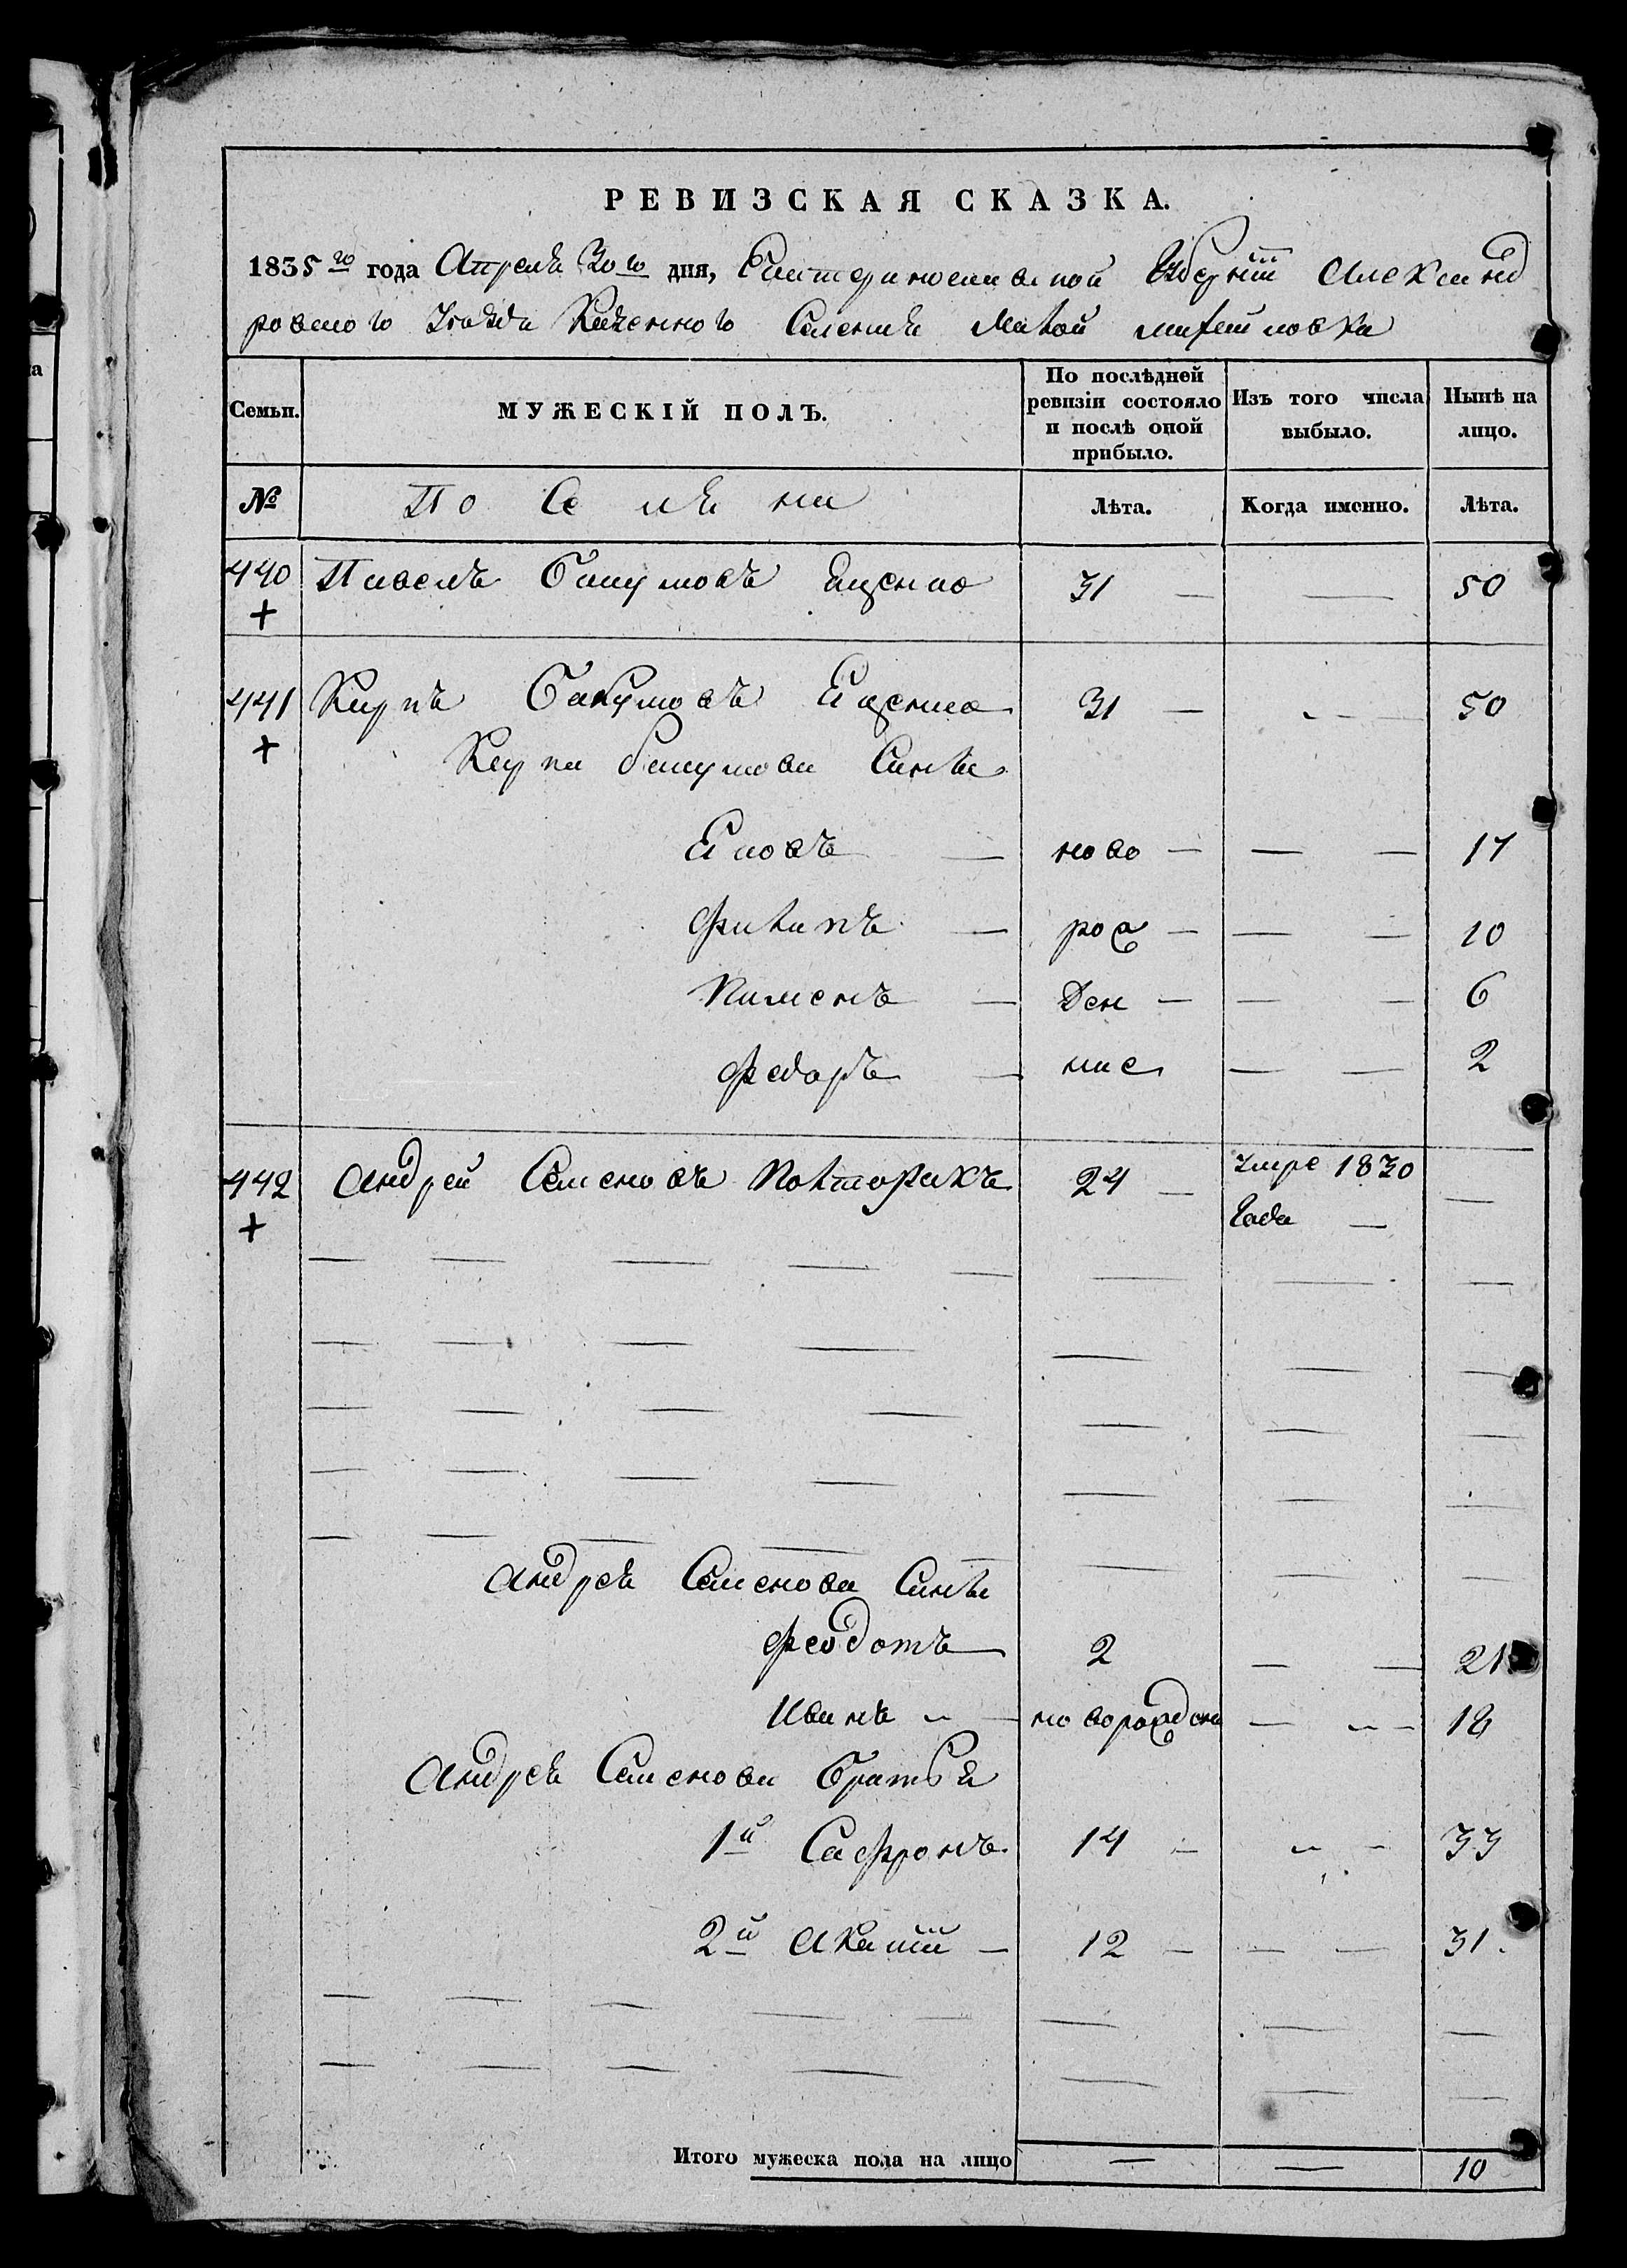 РЕВИЗСКАЯ СКАЗКА.
1835 го года Апреля 30 го дня, Екатеринославской Губернии Александ
ровского Уезда Казенного Селения Малой михайловки
Семьи. МУЖЕСКІЙ ПОЛЪ. По послѣдней ревизіи состояло и послѣ оной прибыло. Изъ того числа выбыло. Нынѣ на лицо.
№ По Се ля на Лѣта. Когда именно. Лѣта.
440 Павелъ Бакумовъ Яценко 31 — — 50
+
441 Карпъ Бакумовъ Яценко 31 — — 50
+
Карпа бакумова Сины
Яковъ — ново — — — 17
Филипъ — рож — — — 10
Пименъ — ден — — — 6
Федоръ — ние — — 2
442 Андрей Семеновъ Полторакъ 24 — умре 1830 —
+ Года —
Андрея Семенова Сины
Феодотъ 2 — — 21
Иванъ — новорожден — — 18
Андрея Семенова братья
1й Сафронъ 14 — — 33
2й Акакий — 12 — — — 31.
Итого мужеска пола на лицо — — 10